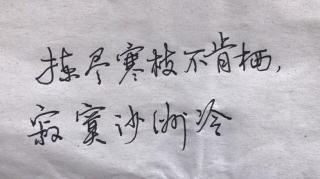 拣尽寒枝不肯栖，
寂寞沙洲冷